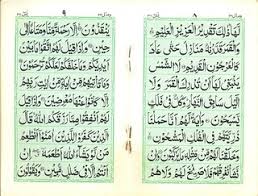 ٨
لَهَا ذٰلِكَ تَقْدِيرُ الْعَزِيزِ الْعَلِيمِ
وَالْقَمَرَ قَدَّرْنٰهُ مَنَازِلَ حَتّٰى عَادَ
كَالْعُرْجُونِ الْقَدِيمِ لَا الشَّمْسُ
يَنْبَغِي لَهَا أَنْ تُدْرِكَ الْقَمَرَ وَلَا الَّيْلُ
سَابِقُ النَّهَارِ وَكُلٌّ فِي فَلَكٍ
يَسْبَحُونَ وَاٰيَةٌ لَهُمْ أَنَّا حَمَلْنَا
ذُرِّيَّتَهُمْ فِي الْفُلْكِ الْمَشْحُونِ
وَخَلَقْنَا لَهُمْ مِنْ مِثْلِهِ مَا يَرْكَبُونَ
وَإِنْ نَشَأْ نُغْرِقْهُمْ فَلَا صَرِيخَ لَهُمْ وَلَا هُمْ
٩
يُنْقَذُونَ إِلَّا رَحْمَةً مِنَّا وَمَتَاعًا إِلٰى
حِينٍ وَإِذَا قِيلَ لَهُمُ اتَّقُوا مَا بَيْنَ
أَيْدِيكُمْ وَمَا خَلْفَكُمْ لَعَلَّكُمْ تُرْحَمُونَ
وَمَا تَأْتِيهِمْ مِنْ اٰيَةٍ مِنْ اٰيٰتِ رَبِّهِمْ إِلَّا
كَانُوا عَنْهَا مُعْرِضِينَ وَإِذَا قِيلَ لَهُمْ
أَنْفِقُوا مِمَّا رَزَقَكُمُ اللّٰهُ قَالَ
الَّذِينَ كَفَرُوا لِلَّذِينَ اٰمَنُوا أَنُطْعِمُ
مَنْ لَوْ يَشَاءُ اللّٰهُ أَطْعَمَهُ
إِنْ أَنْتُمْ إِلَّا فِي ضَلٰلٍ مُبِينٍ وَيَقُولُونَ